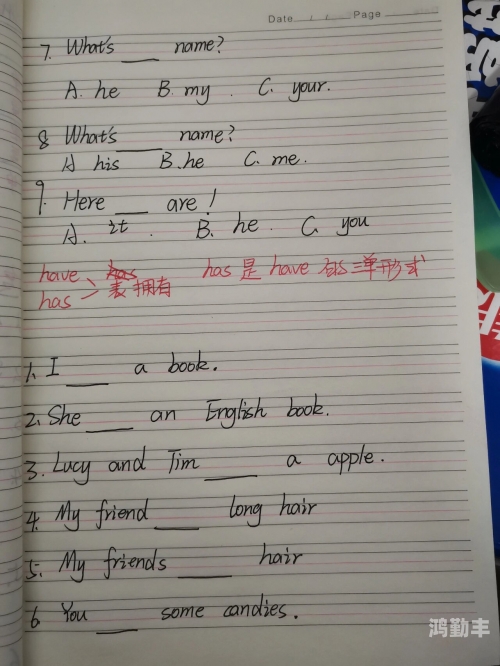 Date Page
7. What's ___ name?
A. he B. my . C. your.
8 What's ___ name?
A his B. he C. me.
9. Here ___ are!
A. it . B. he. C. you
have has has 是 have 的三单形式
has > 表拥有
1. I ___ a book.
2. She ___ an English book.
3. Lucy and Tim ___ a apple.
4. My friend ___ long hair
5. My friends ___ hair
6 You ___ some candies.
鸿勤丰